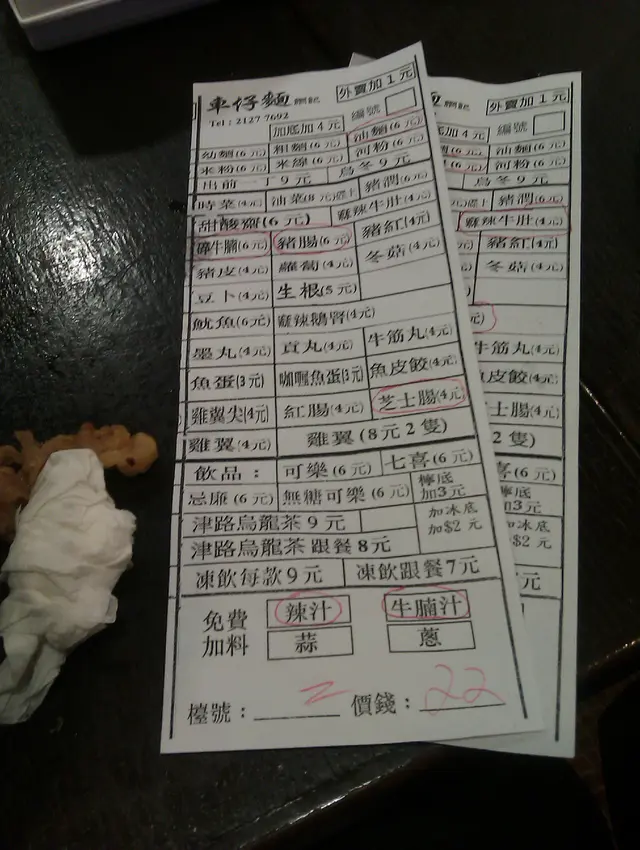 車仔麵
外賣加1元
Tel:2127 7692
加底加4元
編號
幼麵(6元) 粗麵(6元) 油麵(6元)
米粉(6元) 米線(6元) 河粉(6元)
出前一丁9元 烏冬9元
時菜(4元) 油菜(8元) 豬潤(6元)
甜酸齋(6元) 麻辣牛肚(4元)
碎牛腩(6元) 豬腸(6元) 豬紅(4元)
豬皮(4元) 蘿蔔(4元) 冬菇(4元)
豆卜(4元) 生根(5元)
魷魚(6元) 麻辣鵝腎(4元)
墨丸(4元) 貢丸(4元) 牛筋丸(4元)
魚蛋(3元) 咖喱魚蛋(3元) 魚皮餃(4元)
雞翼尖(4元) 紅腸(4元) 芝士腸(4元)
雞翼(4元) 雞翼(8元2隻)
飲品: 可樂(6元) 七喜(6元)
忌廉(6元) 無糖可樂(6元) 檸底加3元
津路烏龍茶9元 加冰底加$2元
津路烏龍茶跟餐8元
凍飲每款9元 凍飲跟餐7元
免費加料 辣汁 牛腩汁
蒜 蔥
檯號: 2 價錢: 22
外賣加1元
加4元 編號
油麵(6元)
河粉(6元)
烏冬9元
豬潤(6元)
麻辣牛肚(4元)
豬紅(4元)
冬菇(4元)
牛筋丸(4元)
魚皮餃(4元)
士腸(4元)
2隻)
喜(6元)
檸底加3元
加冰底加$2元
元